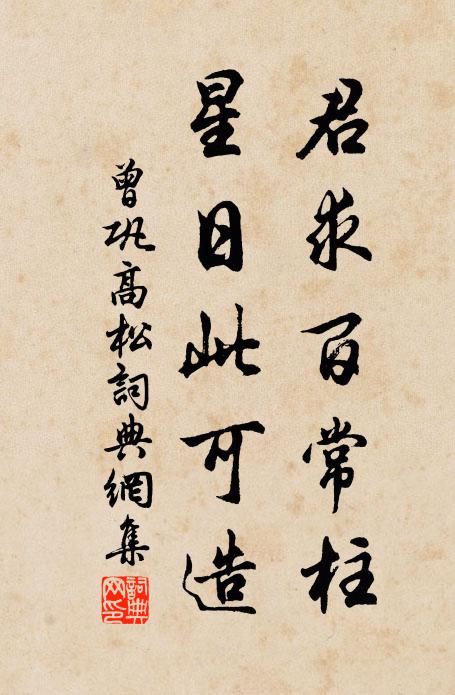 君求百常柱
星日此可造
曾巩高松詞典網集
詞典网印